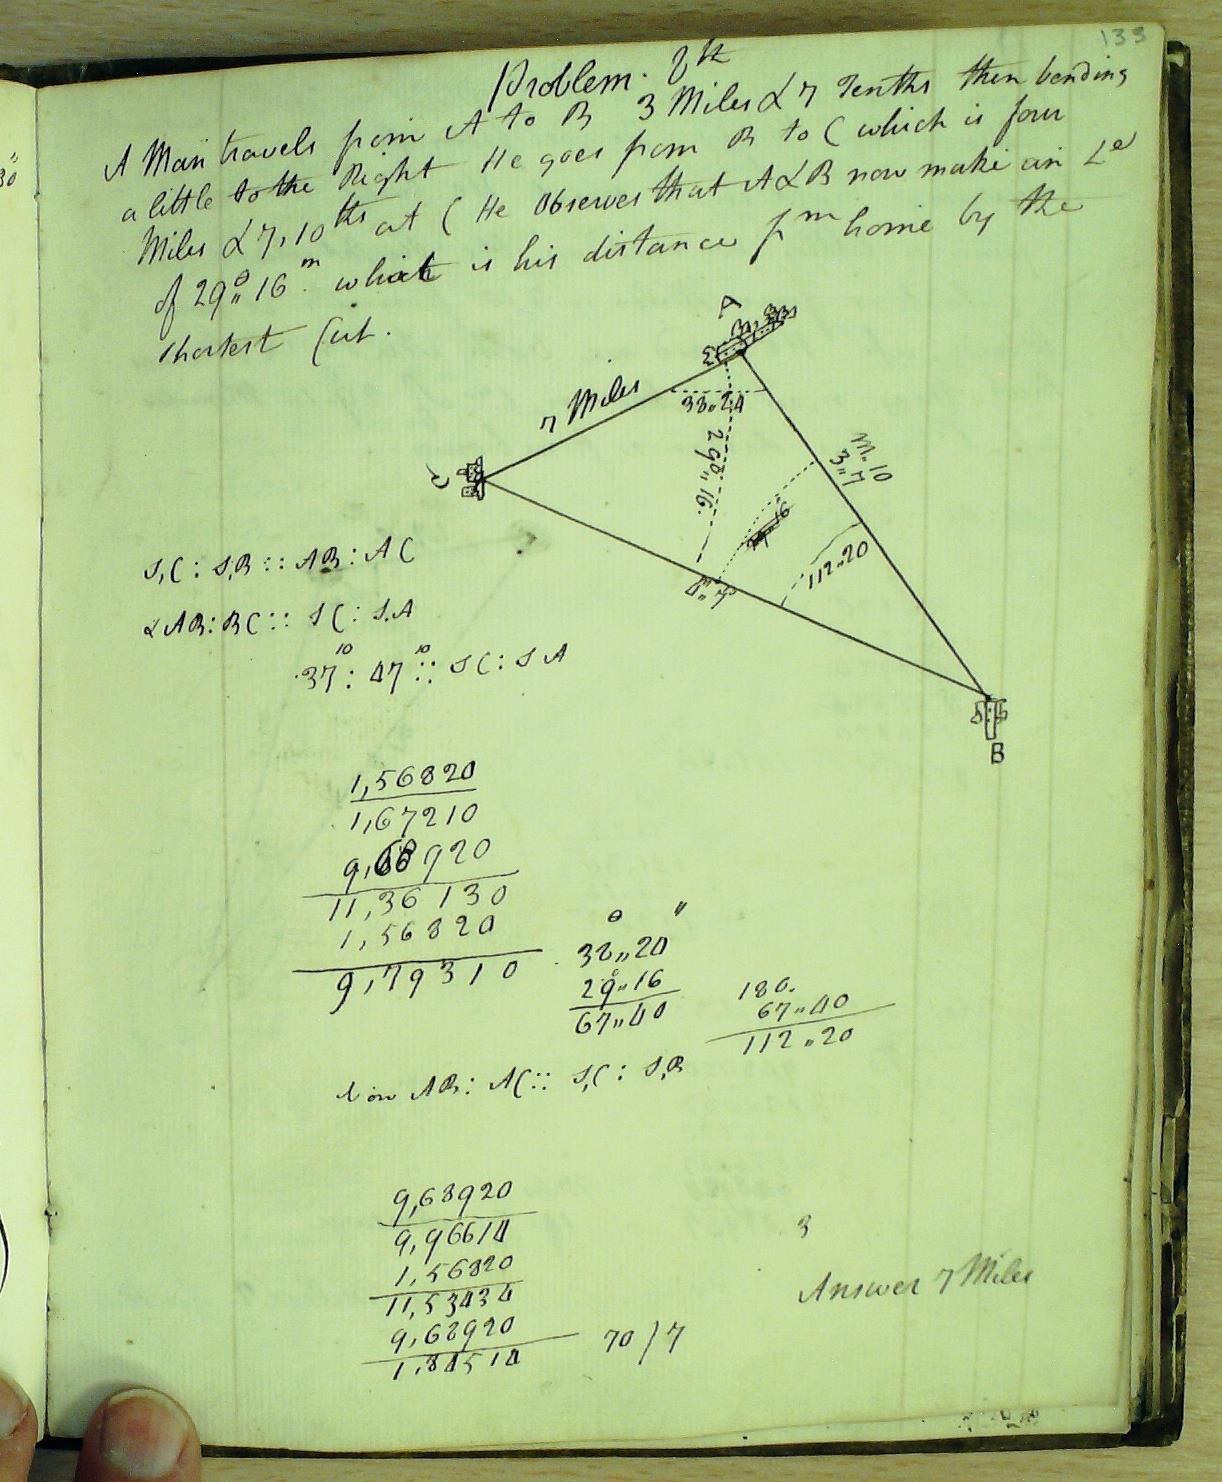 133
Problem. 8th
A Man travels from A to B 3 Miles & 7 Tenths then bending
a little to the Right He goes from B to C which is four
Miles & 7,10ths at C He Observes that A & B now make an Le
of 29°,,16m. which is his distance fm home by the
shortest Cut.
30
A
7 Miles
38,,24
29°,,16.
M,,10
3,,7
C
112,,20
4,,7
B
S,C : S,B :: AB : AC
& AB : BC :: S C : S.A
37 10 : 47 10 :: S C : S A
1,56820
1,67210
9,68920
11,36130
1,56820
9,79310
° "
38,,24
29°,,16
67,,40
180.
67,,40
112,,20
AB : AC :: S,C : S,B
9,68920
9,96614
1,56820
11,53434
9,68920
1,84514
70/7
3
Answer 7 Miles